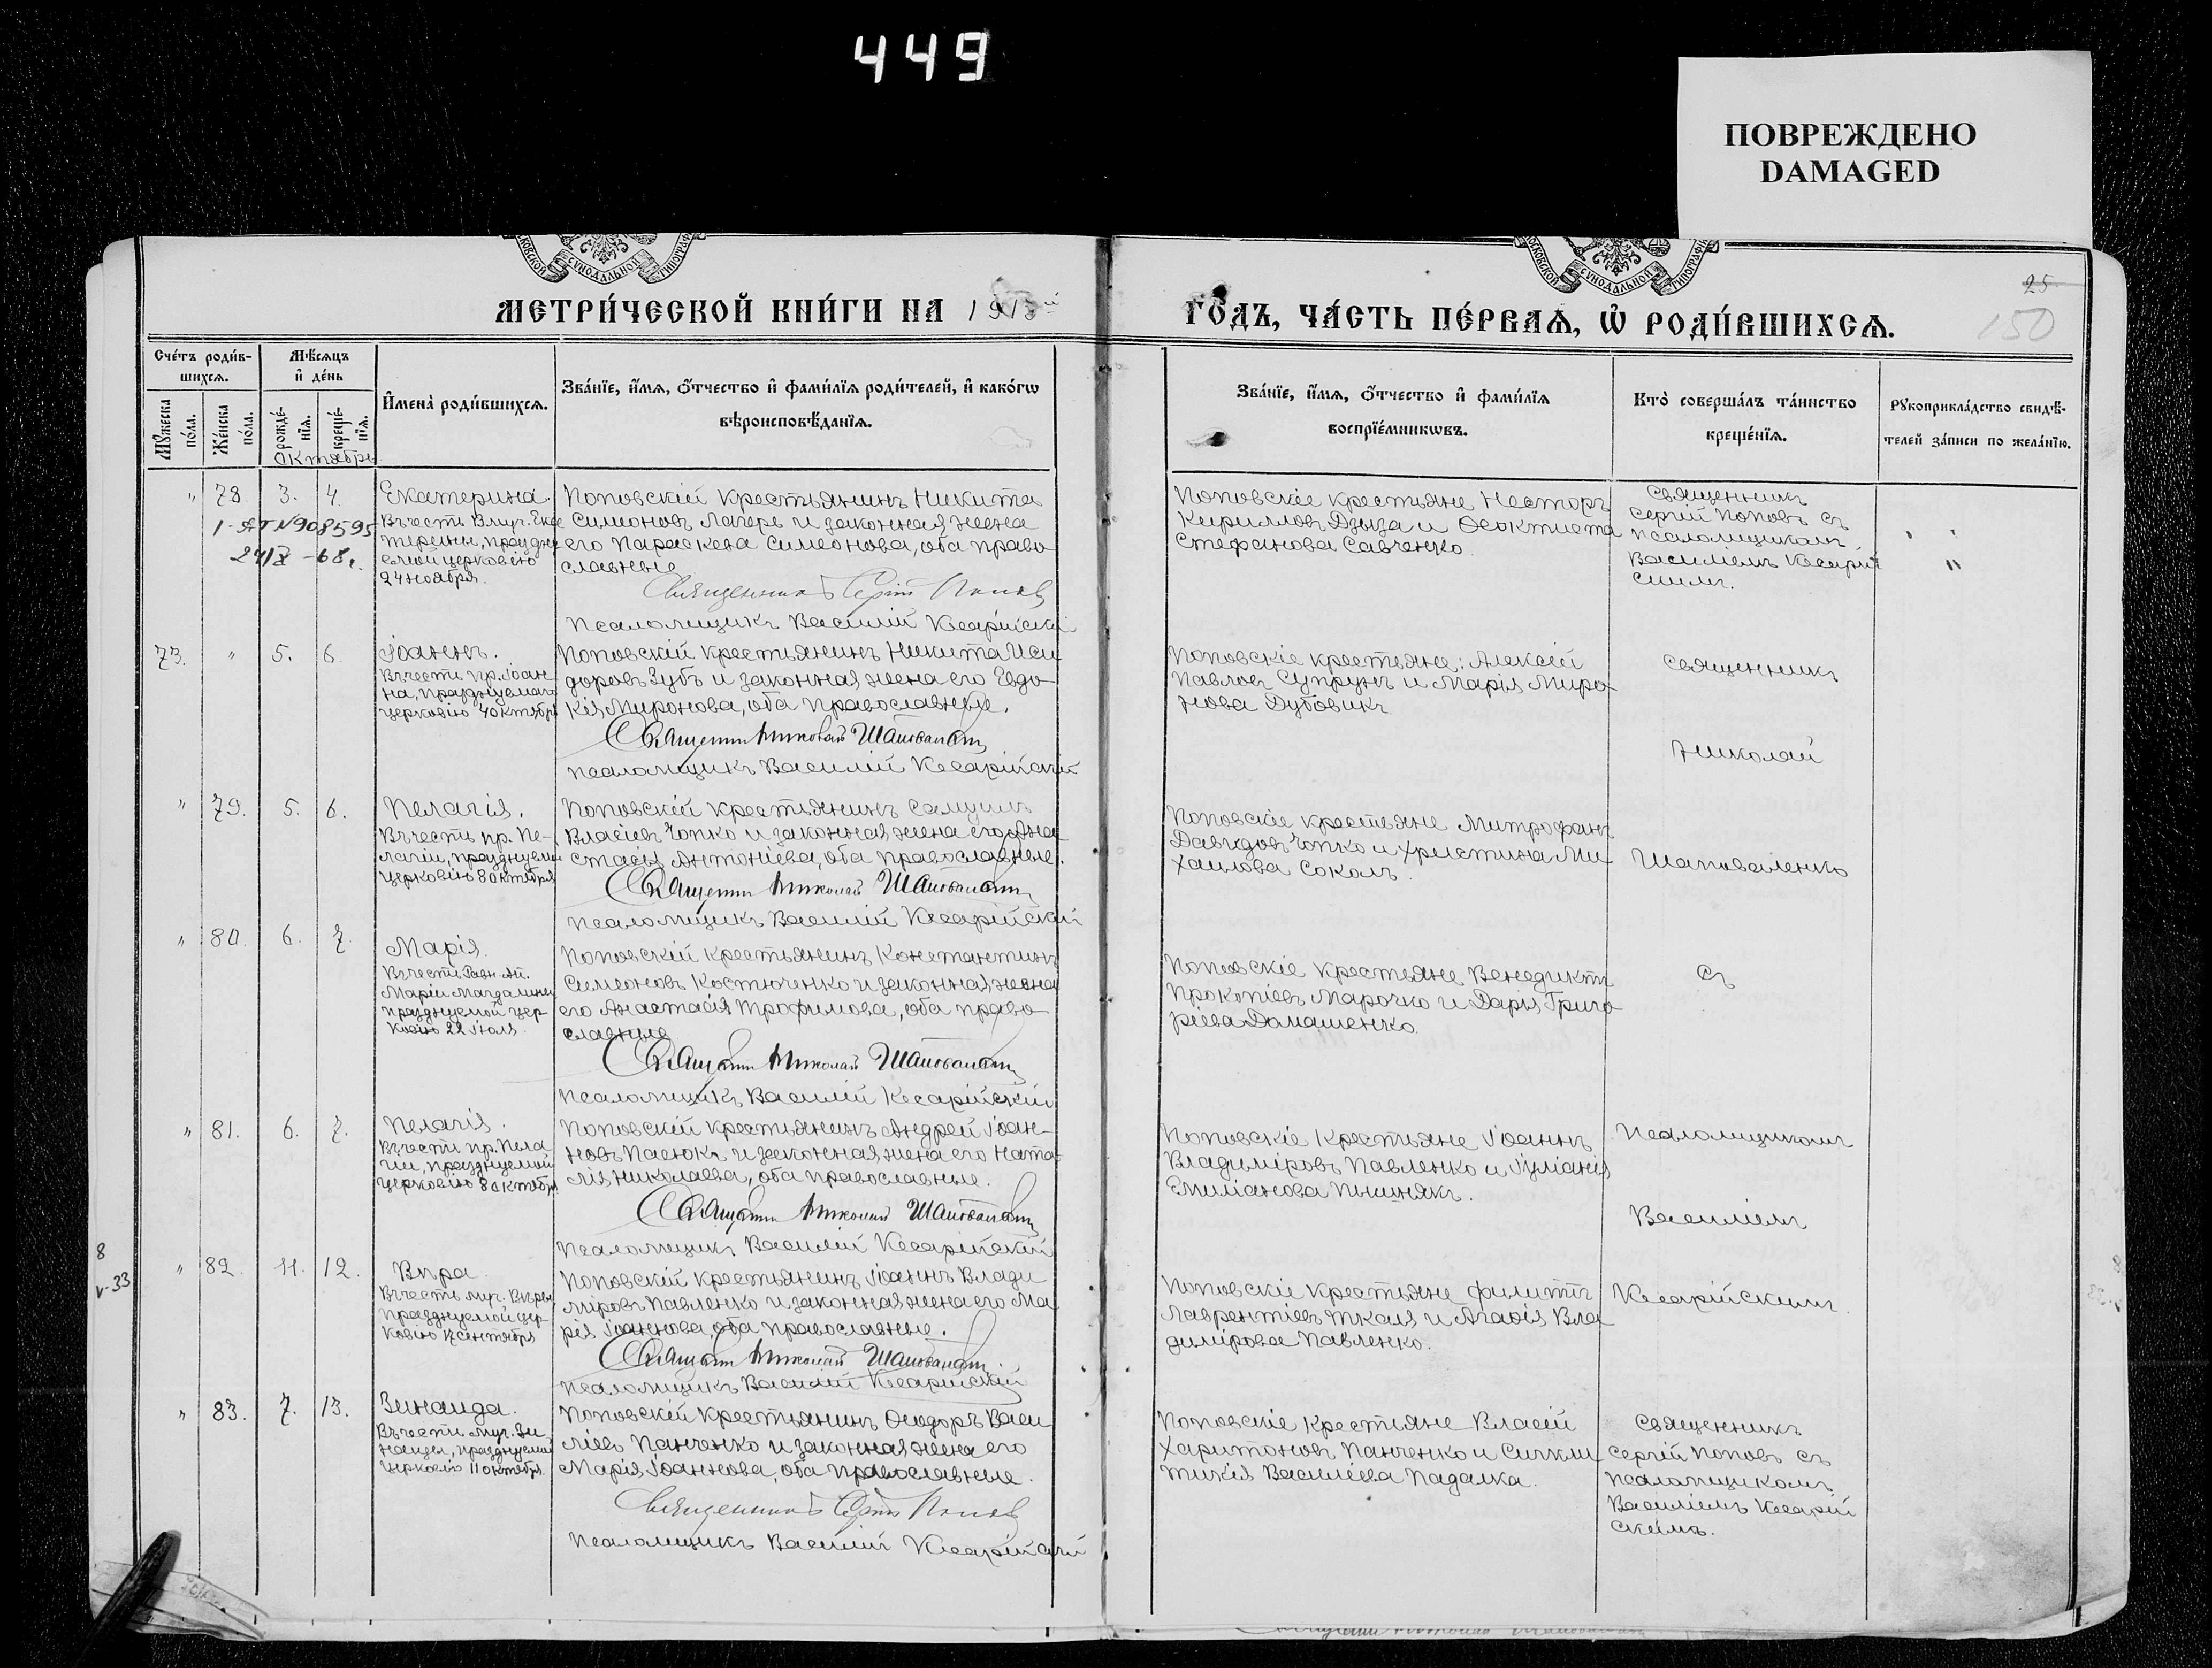 449
ПОВРЕЖДЕНО
DAMAGED
МОСКОВСКОЙ СѴНОДАЛЬНОЙ ТИПОГРАФІИ
МОСКОВСКОЙ СѴНОДАЛЬНОЙ ТИПОГРАФІИ
МЕТРИ́ЧЕСКОЙ КНИ́ГИ НА 1913й
ГО́ДЪ, ЧА́СТЬ ПЕ́РВАѦ, Ѡ҆ РОДИ́ВШИХСѦ.
25
150
Сче́тъ роди́в-
шихсѧ.
Мѣ́сѧцъ
и҆ де́нь
И҆мена̀ роди́вшихсѧ.
Зва́нїе, и҆́мѧ, ѻ҆́тчество и҆ фами́лїѧ роди́телей, и҆ како́гѡ
вѣроисповѣ́данїѧ.
Зва́нїе, и҆́мѧ, ѻ҆́тчество и҆ фами́лїѧ
воспрїе́мникѡвъ.
Кто̀ соверша́лъ та́инство
креще́нїѧ.
Рꙋкоприкла́дство свидѣ́-
телей за́писи по жела́нїю.
Мꙋ́жеска
по́ла.
Же́нска
по́ла.
рожде́-
нїѧ.
креще́-
нїѧ.
Октябрь
" 78. 3. 4.
1-АТ N908595
24/X - 68г.
Екатерина.
Въ честь Влмуч. Ека
терины, праздну
емой церковію
24 ноября.
Поповскій крестьянинъ Никита
Симеоновъ Лагерь и законная жена
его Параскева Симеонова, оба право
славные
Священникъ Сергій Поповъ
Псаломщикъ Василій Кесарійскій
Поповскіе крестьяне Несторъ
Кирилловъ Дзыза и Ѳеоктиста
Стефанова Савченко
Священникъ
Сергій Поповъ съ
псаломщикомъ
Василіемъ Кесарій
скимъ.
73. " 5. 6
Іоаннъ.
Въ честь пр. Іоан
на, празднуемаго
церковію 4 октября
Поповскій крестьянинъ Никита Иси
доровъ Зубъ и законная жена его Евдо
кія Миронова, оба православные.
Священникъ Николай Шаповаленко
Псаломщикъ Василій Кесарійскій
Поповскіе крестьяне: Алексій
Павловъ Супрунъ и Марія Миро-
нова Дубовикъ
Священникъ
Николай
" 79. 5. 6.
Пелагія.
Въ честь пр. Пе-
лагіи, празднуемой
церковію 8 октября
Поповскій крестьянинъ Самуилъ
Власіевъ Чопко и законная жена его Ана
стасія Антоніева, оба православные.
Священникъ Николай Шаповаленко
Псаломщикъ Василій Кесарійскій
Поповскіе крестьяне Митрофанъ
Давидовъ Чопко и Христина Ми-
хаилова Соколъ.
Шаповаленко
" 80. 6. 7.
Марія.
Въ честь Равн. Ап.
Маріи Магдалины
празднуемой цер
ковію 22 Іюля.
Поповскій крестьянинъ Константинъ
Симеоновъ Костюченко и законная жена
его Анастасія Трофимова, оба право
славные
Священникъ Николай Шаповаленко
Псаломщикъ Василій Кесарійскій
Поповскіе крестьяне Венедиктъ
Прокопіевъ Марочко и Дарія Григо
ріева Домашенко
съ
" 81. 6. 7.
Пелагія.
Въ честь пр. Пела
гіи, празднуемой
церковію 8 октября
Поповскій крестьянинъ Андрей Іоан-
новъ Пасюкъ и законная жена его Ната
лія Николаева, оба православные.
Священникъ Николай Шаповаленко
Псаломщикъ Василій Кесарійскій
Поповскіе крестьяне Іоаннъ
Владиміровъ Павленко и Іуліанія
Емиліанова Пышнякъ.
Псаломщикомъ
Василіемъ
8
v-33
" 82. 11. 12.
Вѣра
Въ честь муч. Вѣры
празднуемой цер-
ковію 17 сентября
Поповскій крестьянинъ Іоаннъ Влади
міровъ Павленко и законная жена его Ма
рія Іоаннова, оба православные.
Священникъ Николай Шаповаленко
Псаломщикъ Василій Кесарійскій
Поповскіе крестьяне Филиппъ
Лаврентіевъ Ткаля и Агафія Вла
димірова Павленко.
Кесарійскимъ.
" 83. 7. 13.
Зинаида.
Въ честь муч. Зи
наиды, празднуемой
церковію 11 октября
Поповскій крестьянинъ Ѳеодоръ Васи
ліевъ Панченко и законная жена его
Марія Іоаннова, оба православные.
Священникъ Сергій Поповъ
Псаломщикъ Василій Кесарійскій
Поповскіе крестьяне Власій
Харитоновъ Панченко и Сигкли
тикія Василіева Падалка.
Священникъ
Сергій Поповъ съ
псаломщикомъ
Василіемъ Кесарій
скимъ.